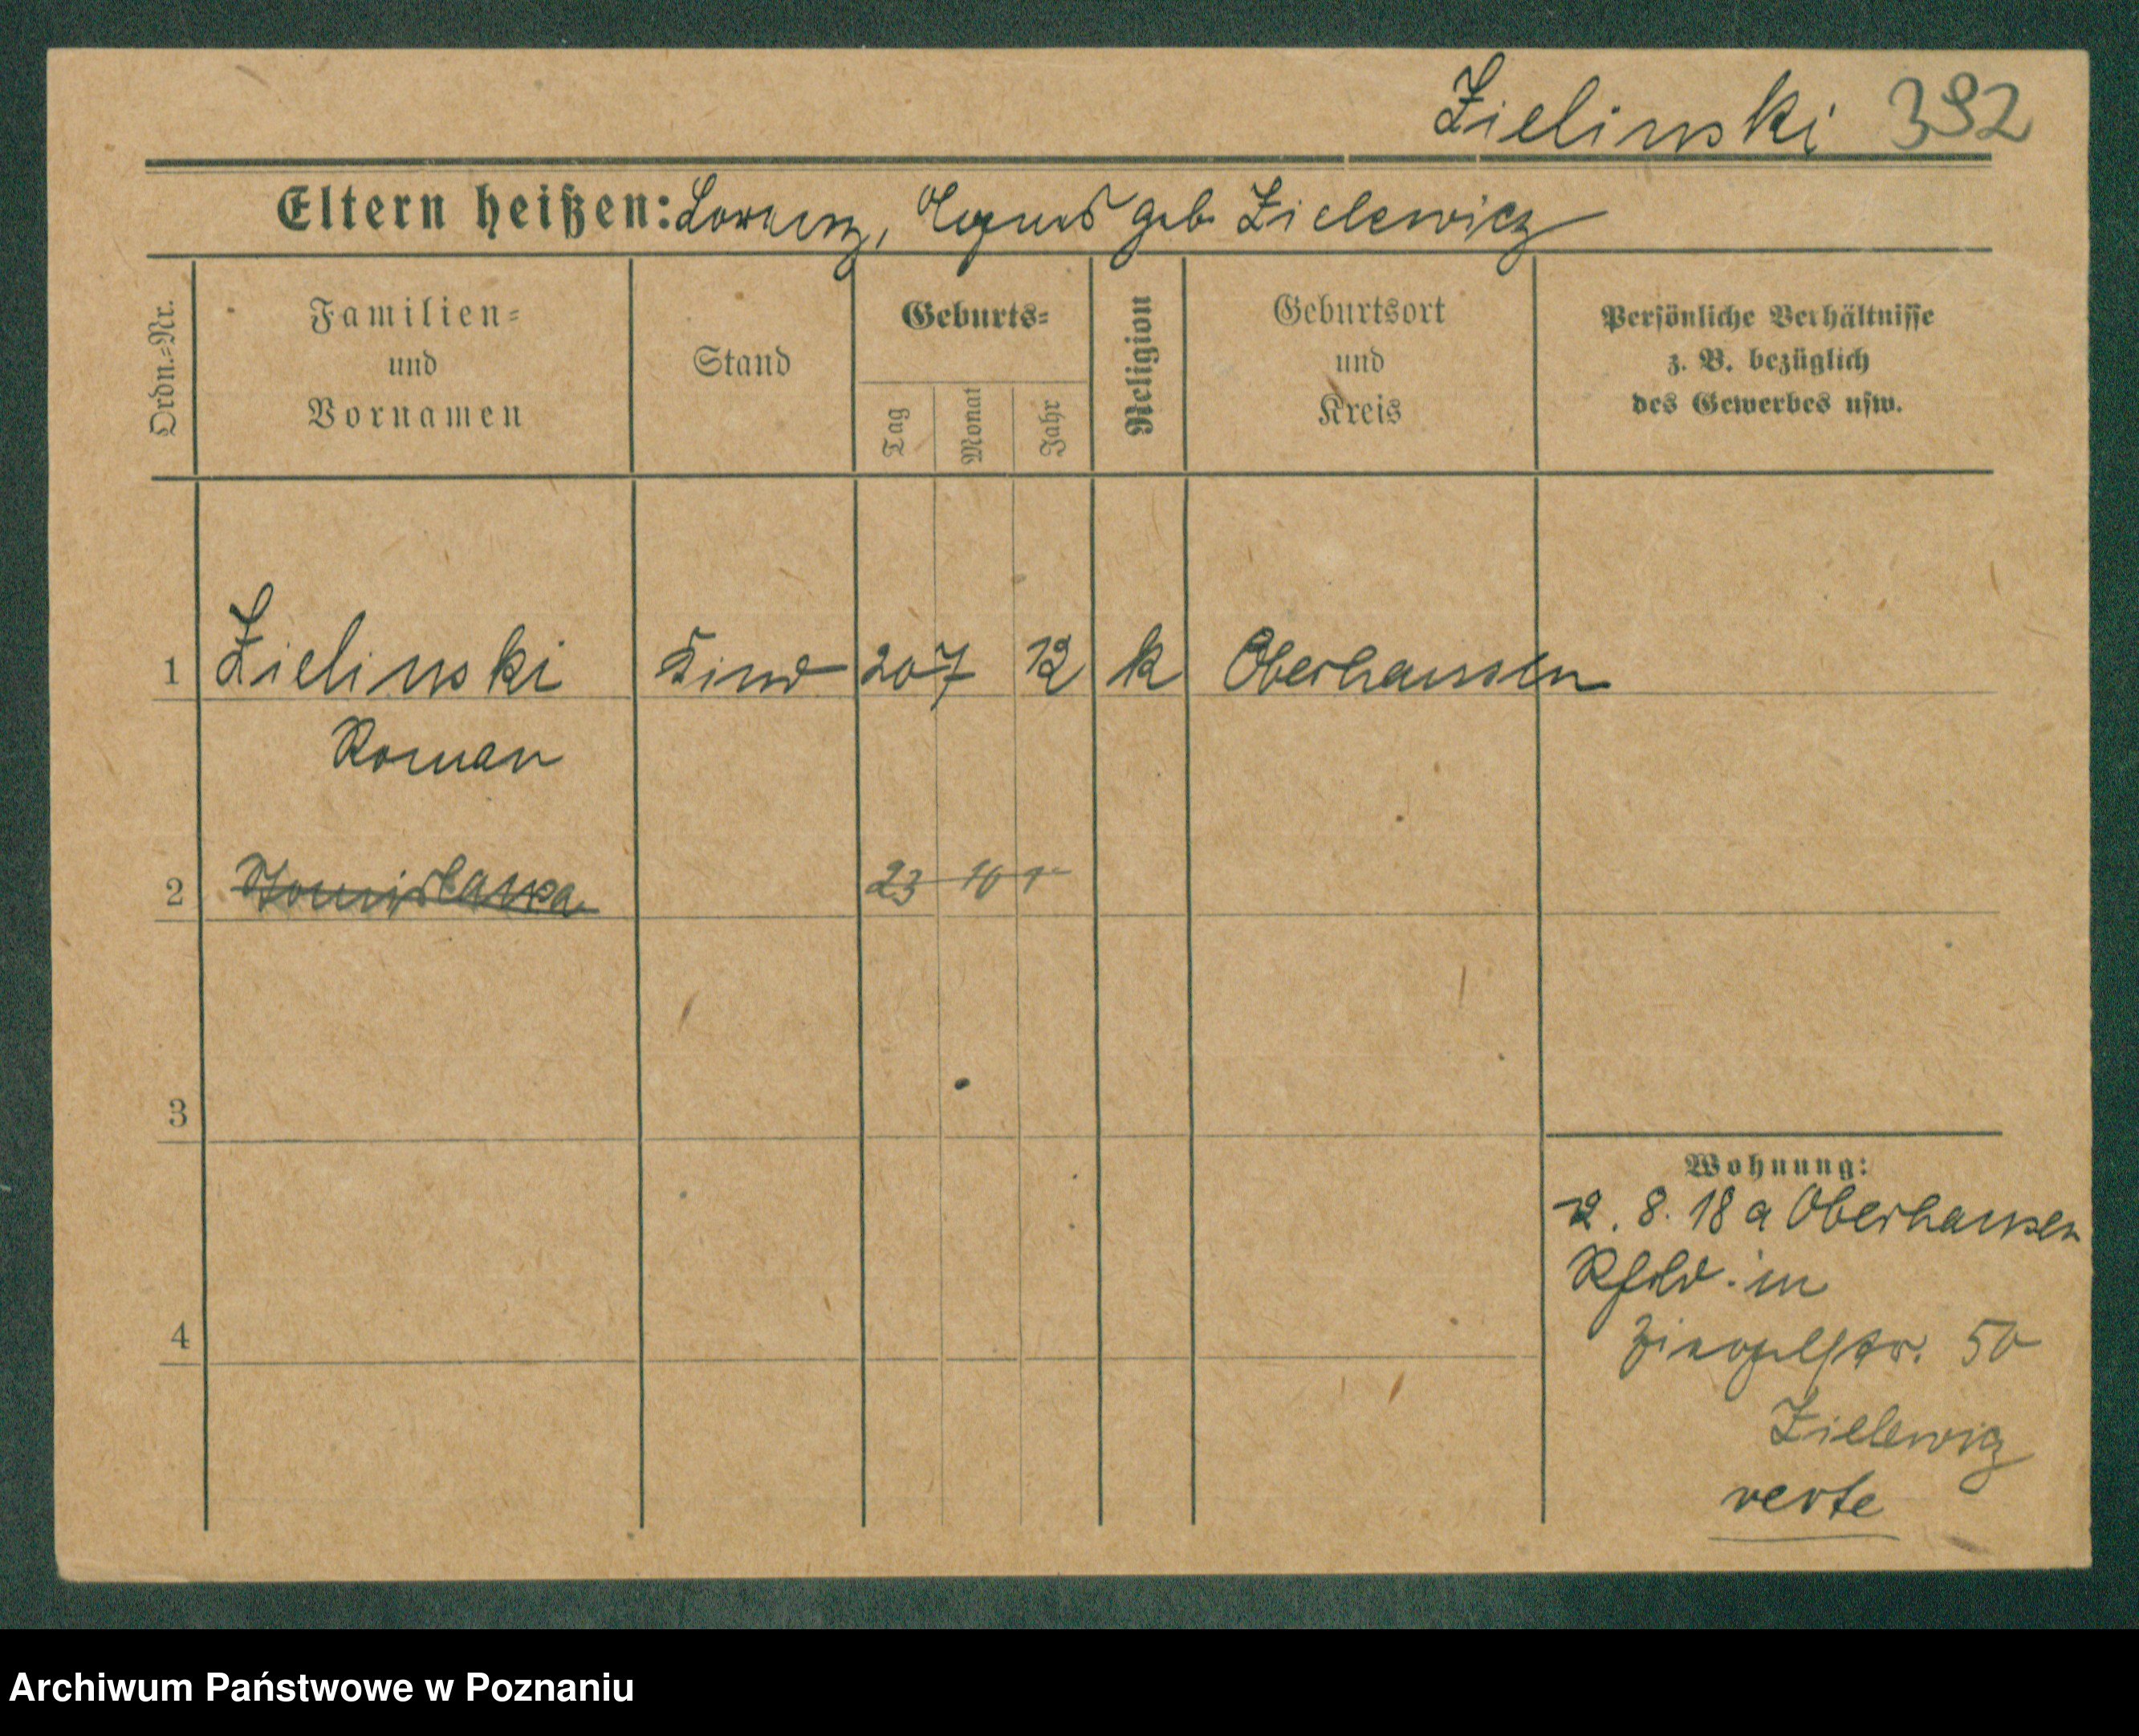 Zielinski 392
Eltern heißen: Lorenz, Agnes geb. Zielewicz
Ordn.-Nr.
Familien-
und
Vornamen
Stand
Geburts-
Tag
Monat
Jahr
Religion
Geburtsort
und
Kreis
Persönliche Verhältnisse
z. B. bezüglich
des Gewerbes usw.
1 Zielinski Kind 20 7 12 k Oberhausen
Roman
2 Stanislawa 23 10 1
3
4
Wohnung:
2. 8. 18 a Oberhausen
Rhld. in
50
Zielewicz
verte
Archiwum Państwowe w Poznaniu